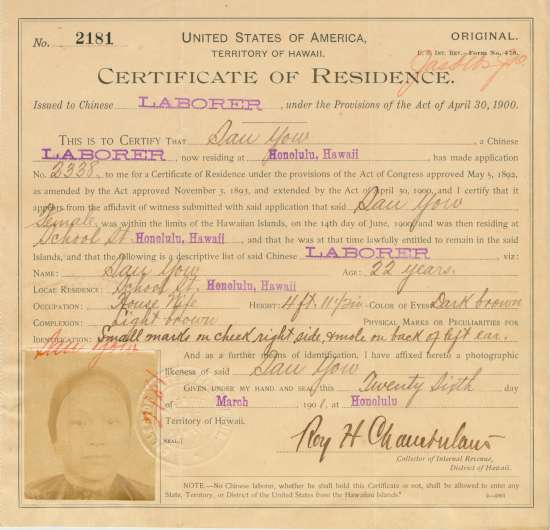 No. 2181
UNITED STATES OF AMERICA,
TERRITORY OF HAWAII.
ORIGINAL.
U. S. Int. Rev.—Form No. 476.
CERTIFICATE OF RESIDENCE.
Issued to Chinese LABORER, under the Provisions of the Act of April 30, 1900.
THIS IS TO CERTIFY THAT Sau Yow a Chinese
LABORER, now residing at Honolulu, Hawaii has made application
No. 2338, to me for a Certificate of Residence under the provisions of the Act of Congress approved May 5, 1892,
as amended by the Act approved November 3, 1893, and extended by the Act of April 30, 1900, and I certify that it
appears from the affidavit of witness submitted with said application that said Sau Yow
Female, was within the limits of the Hawaiian Islands, on the 14th day of June, 1900, and was then residing at
School St. Honolulu, Hawaii, and that he was at that time lawfully entitled to remain in the said
Islands, and that the following is a descriptive list of said Chinese LABORER viz:
NAME: Sau Yow AGE: 22 years.
LOCAL RESIDENCE: School St. Honolulu, Hawaii
OCCUPATION: House Wife HEIGHT: 4 ft. 11 1/2 in COLOR OF EYES: Dark brown
COMPLEXION: Light brown PHYSICAL MARKS OR PECULIARITIES FOR
IDENTIFICATION: Small marks on cheek right side & mole on back of left ear.
And as a further means of identification, I have affixed hereto a photographic
likeness of said Sau Yow
GIVEN UNDER MY HAND AND SEAL this Twenty Sixth day
of March 1901, at Honolulu
Territory of Hawaii.
[SEAL.]
Roy H Chamberlain
Collector of Internal Revenue,
District of Hawaii.
NOTE.—No Chinese laborer, whether he shall hold this Certificate or not, shall be allowed to enter any
State, Territory, or District of the United States from the Hawaiian Islands."